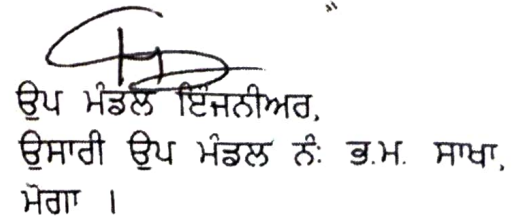 ਉਪ ਮੰਡਲ ਇੰਜਨੀਅਰ,
ਉਸਾਰੀ ਉਪ ਮੰਡਲ ਨੰ: ਭ.ਮ. ਸਾਖਾ,
ਮੋਗਾ ।